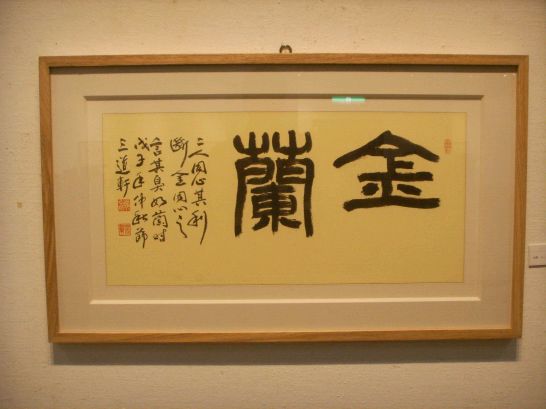 金蘭
二人同心其利
斷金同心之
言其臭如蘭時
戊子年仲秋節
三道軒